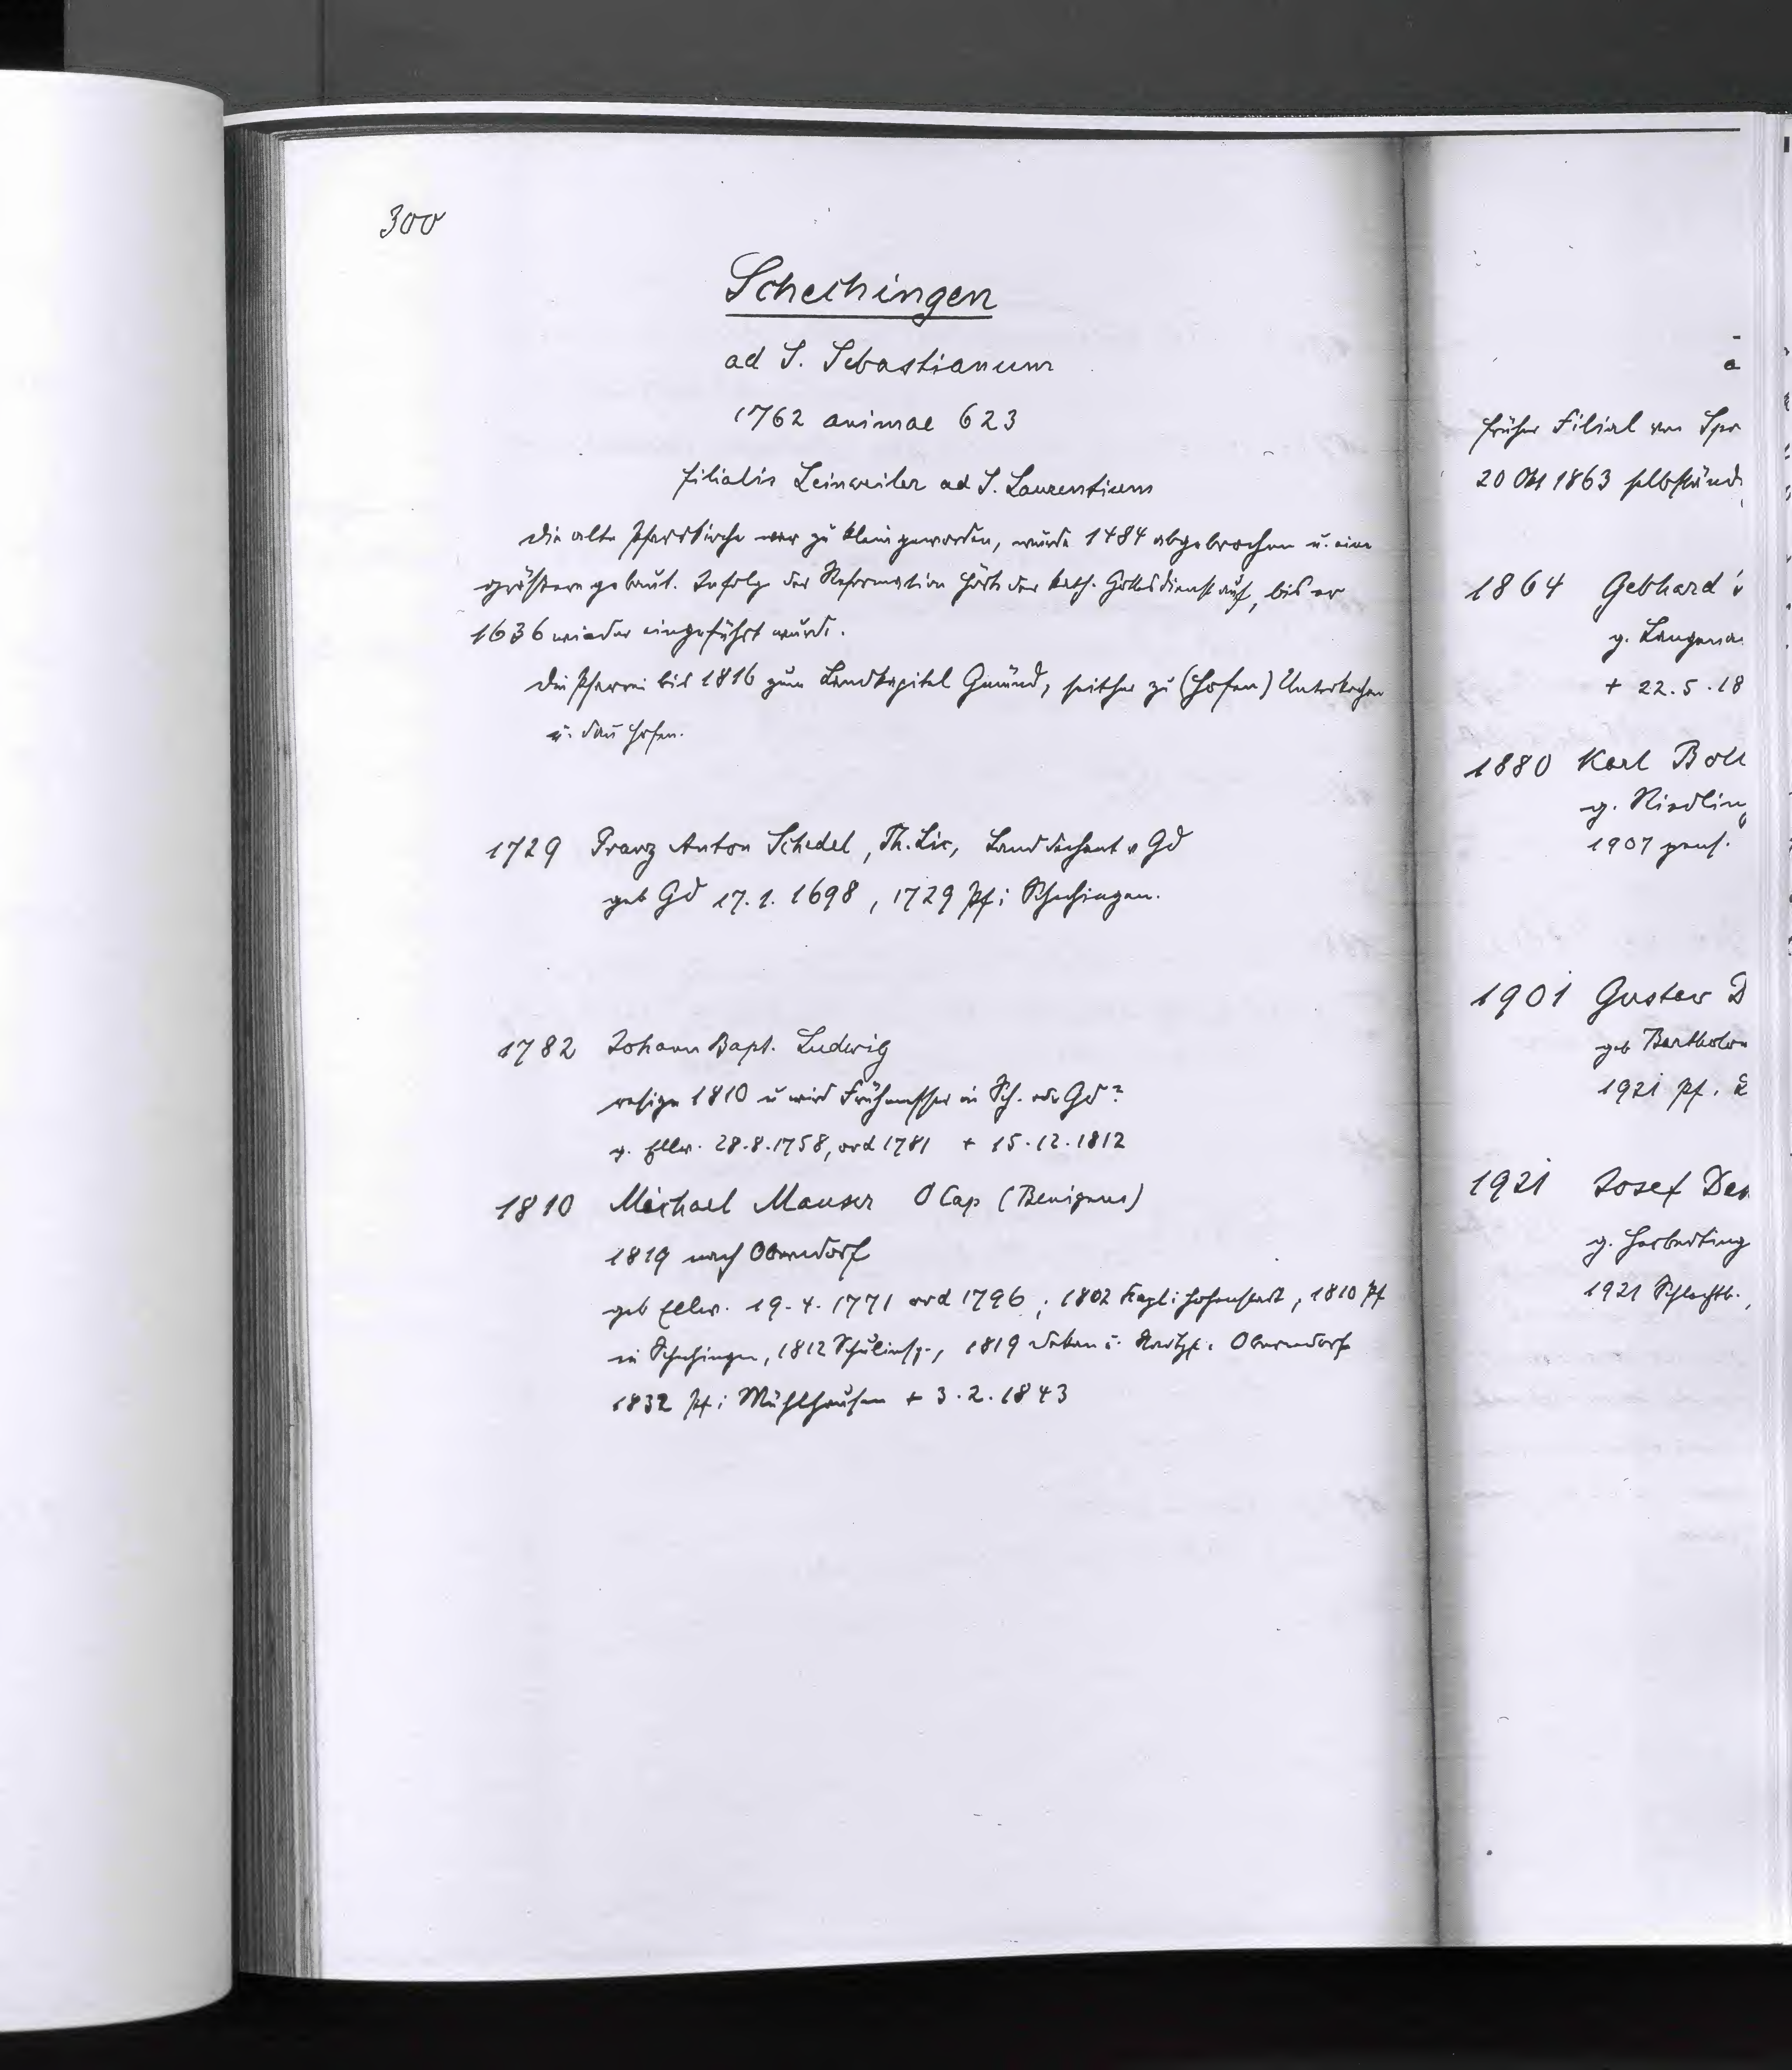 300
Schechingen
ad S. Sebastianum
1762 animae 623
filialis Leinweiler ad S. Laurentium
Die alte Pfarrkirche war zu klein geworden, wurde 1484 abgebrochen u. eine
größere gebaut. Infolge der Reformation hörte der kath. Gottesdienst auf, bis er
1636 wieder eingeführt wurde.
Die Pfarrei bis 1816 zum Landkapitel Gmünd, seither zu (Hofen) Unterkochen
u. dan Hofen.
1729 Franz Anton Schedel, Th. Lic, Landdechant v Gd
geb Gd 17.1.1698, 1729 Pf i Schechingen.
1782 Johann Bapt. Ludwig
resign 1810 u wird Frühmesser in Sch. oder Gd?
g. Ellw. 28.8.1758, ord 1781 + 15.12.1812
1810 Michael Mauser O Cap (Benignus)
1819 nach Oberndorf
geb Ellw. 19.4.1771 ord 1796; 1802 Kapl i Hohenstadt, 1810 Pf
in Schechingen, 1812 Schulinsp., 1819 Dekan u. Stadtpf. Oberndorf
1832 Pf i Mühlhausen + 3.2.1843
früher Filial von
20 Okt 1863
1864 Gebhard
g.
+ 22.5.18
1880 Karl
g.
1907 pens.
1901 Gustav D
geb
1921 Pf.
1921 Josef
g.
1921